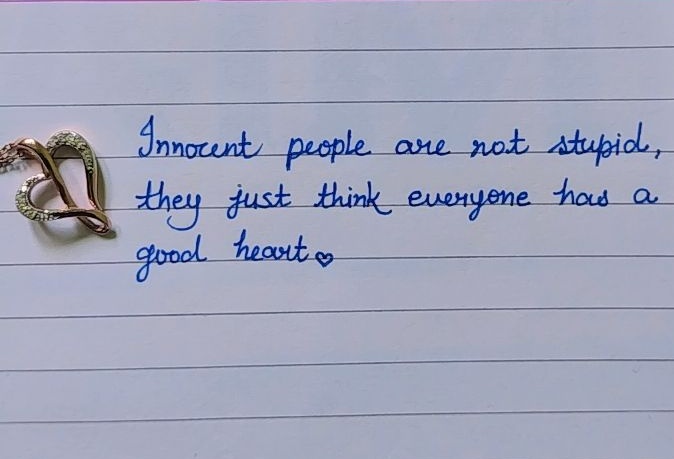 Innocent people are not stupid,
they just think everyone has a
good heart♡